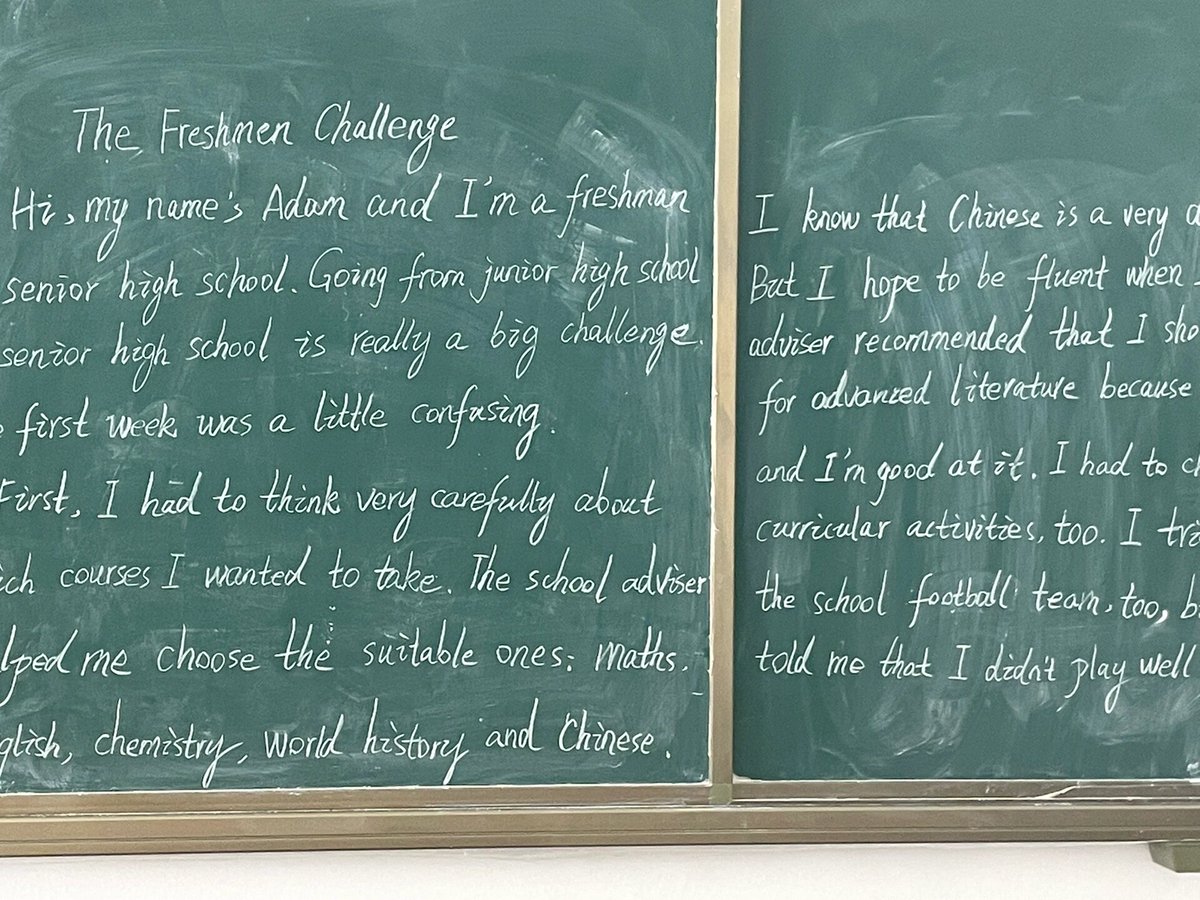 The Freshmen Challenge
Hi, my name's Adam and I'm a freshman
senior high school. Going from junior high school
senior high school is really a big challenge.
first week was a little confusing.
First, I had to think very carefully about
courses I wanted to take. The school adviser
me choose the suitable ones: maths,
chemistry, world history and Chinese.
I know that Chinese is a very
But I hope to be fluent when
adviser recommended that I
for advanced literature because
and I'm good at it. I had to
curricular activities, too. I
the school football team, too,
told me that I didn't play well